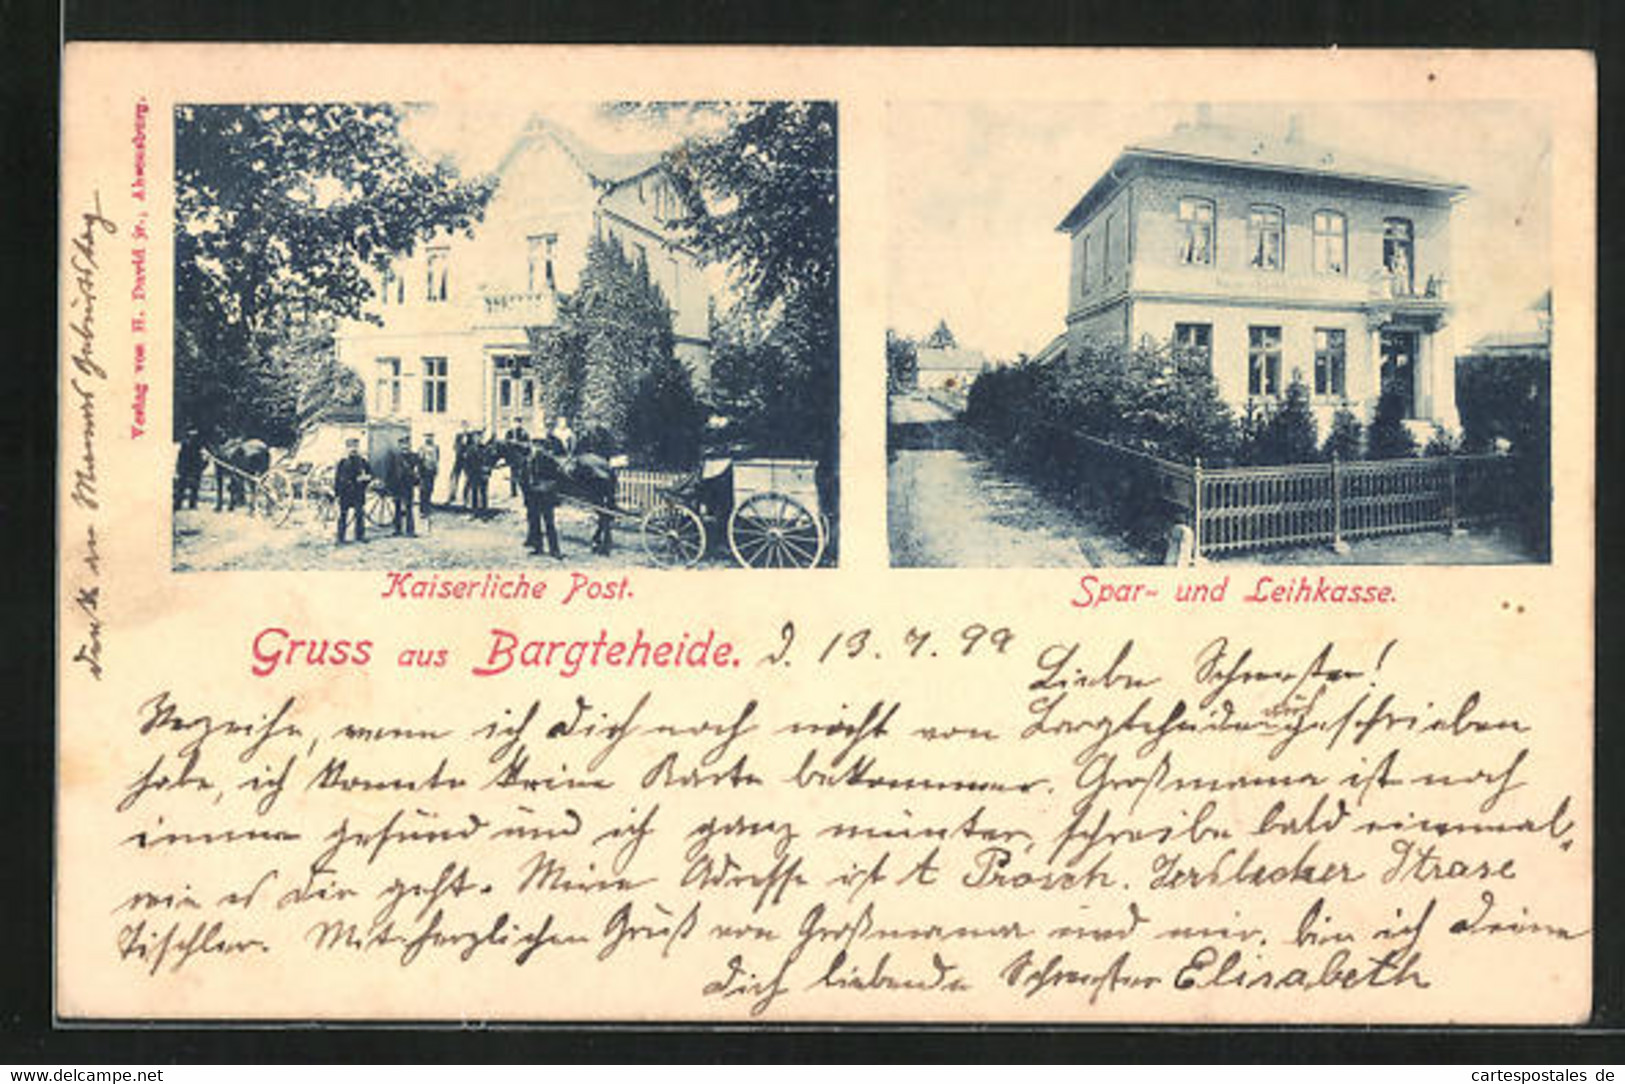 Verlag von H. David jr., Ahrensburg.
Denk an Mamas Geburtstag
Kaiserliche Post.
Spar- und Leihkasse.
Gruss aus Bargteheide. d. 13. 7. 99
Liebe Schwester!
Verzeihe, wenn ich Dich noch nicht von Bargteheide aus geschrieben
habe, ich konnte keine Karte bekommen. Großmama ist noch
immer gesund und ich ganz munter, schreibe bald einmal,
wie es Dir geht. Meine Adresse ist A Prosch. Strase
Tischler. Mit herzlichen Gruß von Großmama und mir, bin ich Deine
Dich liebende Schwester Elisabeth
www.cartespostales.com
cartespostales de